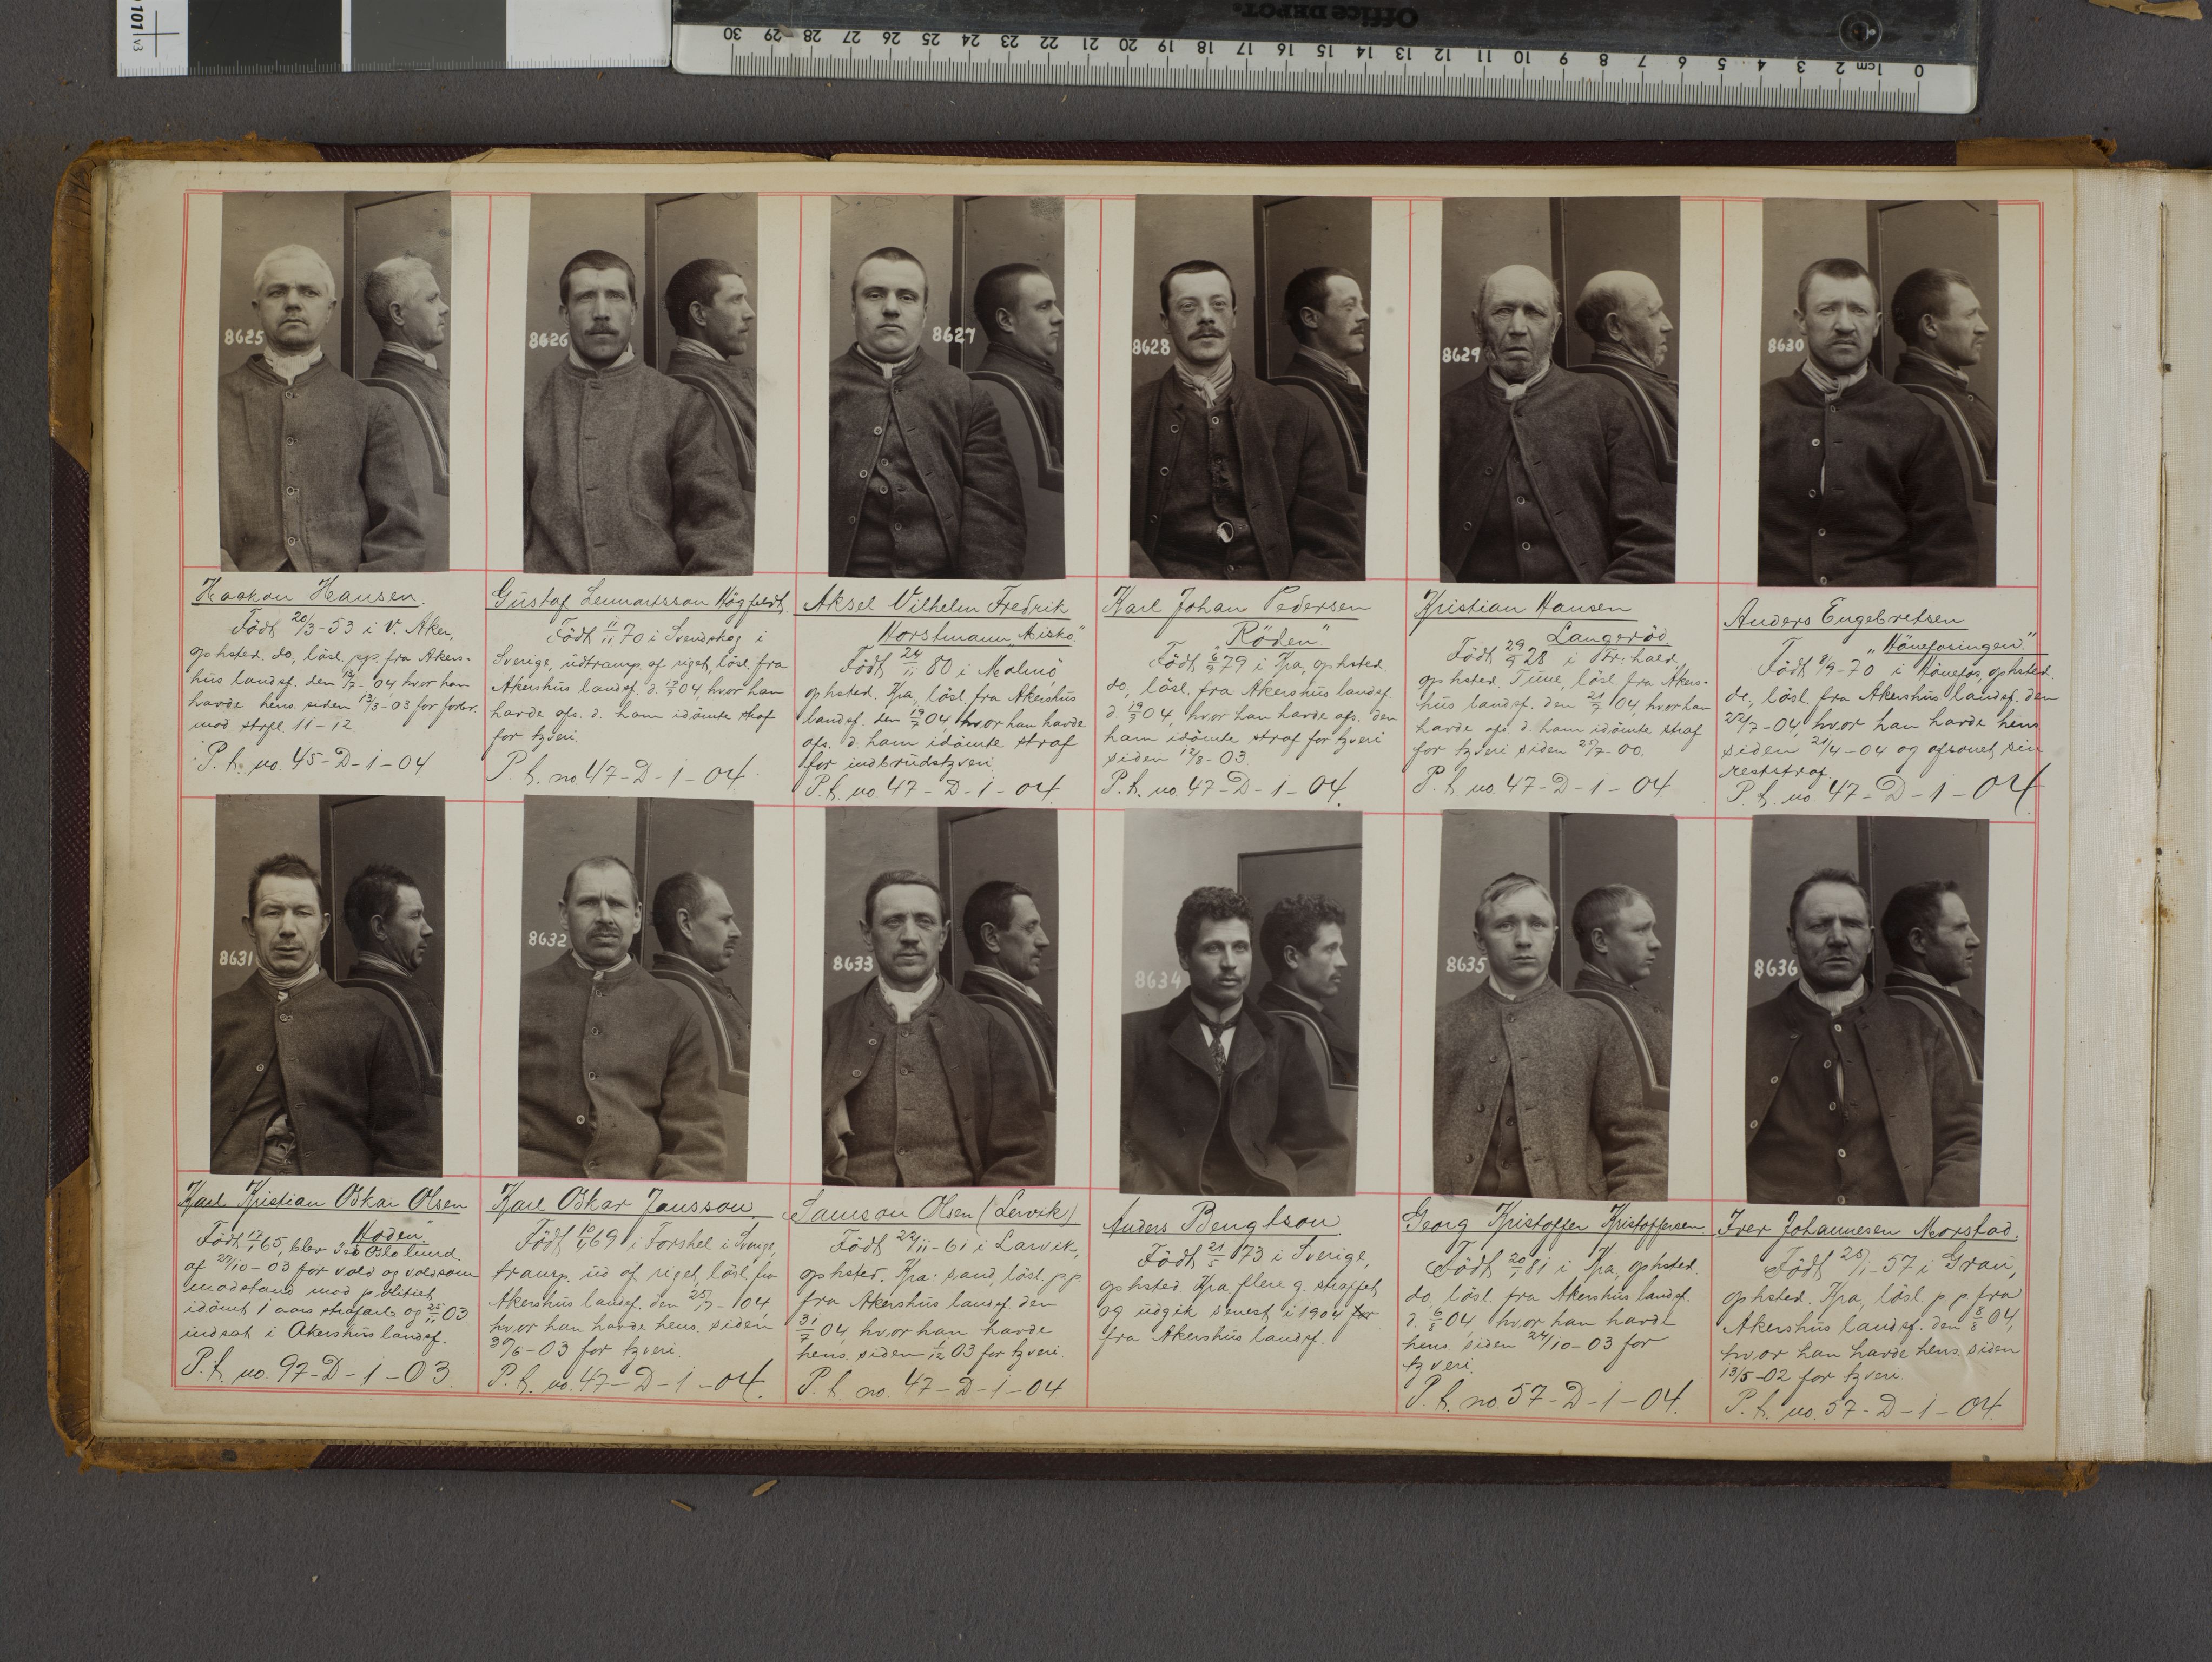 Office DEPOT.
30 29 28 27 26 25 24 23 22 21 20 19 18 17 16 15 14 13 12 11 10 9 8 7 6 5 4 3 2 1cm 0
8625
8626
8627
8628
8629
8630
Haakon Hansen.
Födt 20/3-53 i V. Aker,
ophsted. do, lösl. pp. fra Akers-
hus landsf. den 14/7-04, hvor han
havde hens. siden 13/3-03 for forbr.
mod strfl. 11-12.
P. h. no. 45-D-1-04
Gustaf Lennartsson Högfeldt.
Födt 11/11 70 i Svenskog i
Sverige, udtransp. af riget, lösl. fra
Akershus landsf. d. 19/7 04, hvor han
havde afs. d. ham idömte straf
for tyveri.
P. h. no. 47-D-1-04.
Aksel Vilhelm Fredrik
Horstmann „Misko."
Födt 24/11 80 i Malmö,
ophsted. Kra, lösl. fra Akershus
landsf. den 19/7 04, hvor han havde
afs. d. ham idömte straf
for indbrudstyveri.
P. h. no. 47-D-1-04
Karl Johan Pedersen
„Röden"
Födt 6/9 79 i Kra, ophsted.
do, lösl. fra Akershus landsf.
d. 19/7 04, hvor han havde afs. den
ham idömte straf for tyveri
siden 12/8-03.
P. h. no. 47-D-1-04.
Kristian Hansen
Langeröd
Födt 29/9 28 i Fr.hald,
ophsted. Tune, lösl. fra Akers-
hus landsf. den 21/7 04, hvor han
havde afs. d. ham idömte straf
for tyveri siden 25/7-00.
P. h. no 47-D-1-04
Anders Engebretsen
„Hönefosingen."
Födt 8/9-70 i Hönefos, ophsted.
do, lösl. fra Akershus landsf. den
22/7-04, hvor han havde hens.
siden 21/4-04 og afsonet sin
reststraf.
P. h. no. 47-D-1-04.
8631
8632
8633
8634
8635
8636
Karl Kristian Oskar Olsen
„Hoden."
Födt 17/1 65, blev ved Oslo lmrd.
af 27/10-03 for vold og voldsom
modstand mod politiet
idömt 1 aars strafarb. og 25/11 03
indsat i Akershus landsf.
P. h. no. 97-D-1-03
Karl Oskar Jansson.
Födt 10/4 69 i Forshel i Sverige,
transp. ud af riget, lösl. fra
Akershus landsf. den 25/7-04,
hvor han havde hens. siden
30/6-03 for tyveri.
P. h. no. 47-D-1-04.
Samson Olsen (Lervik)
Födt 22/11-61 i Larvik,
ophsted. Kra.sand, lösl. pp.
fra Akershus landsf. den
31/7 04, hvor han havde
hens. siden 1/12 03 for tyveri.
P. h. no. 47-D-1-04
Anders Bengtson.
Födt 21/5 73 i Sverige,
ophsted. Kra flere g. straffet
og udgik senest i 1904 for
fra Akershus landsf.
Georg Kristoffer Kristoffersen.
Födt 20/1 81 i Kra, ophsted.
do, lösl. fra Akershus landsf.
d. 6/8 04, hvor han havde
hens. siden 24/10-03 for
tyveri.
P. h. no. 57-D-1-04.
Iver Johannesen Morstad.
Födt 25/1-57 i Gran,
ophsted. Kra, lösl. pp fra
Akershus landsf. den 8/8 04,
hvor han havde hens. siden
13/5-02 for tyveri.
P. h. no. 57-D-1-04.